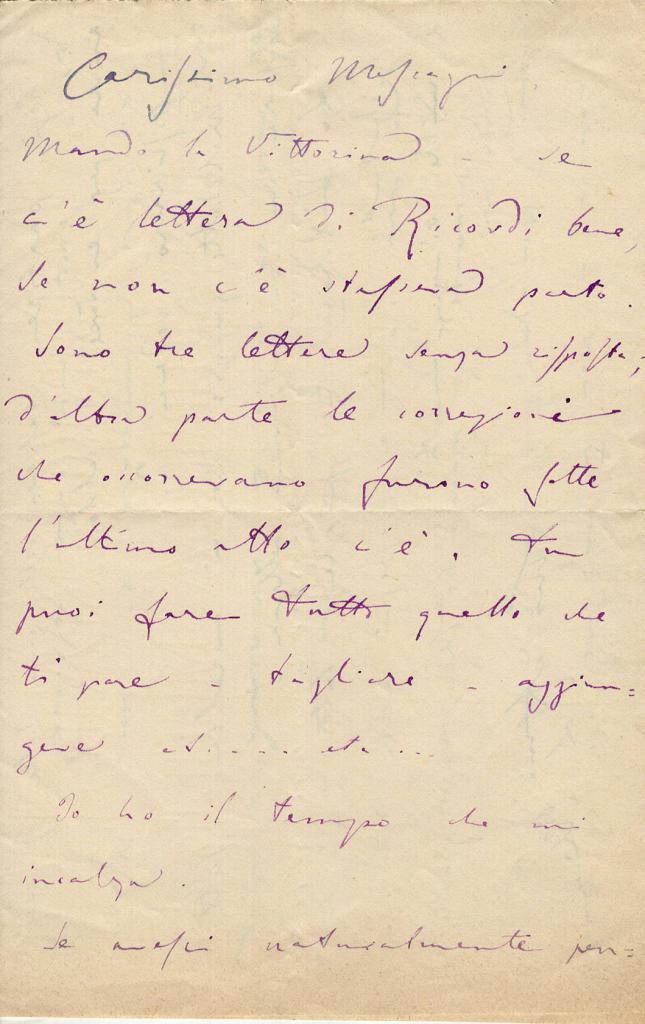 Carissimo Mascagni
Mando la Vittorina - se
c'è lettera di Ricordi bene,
se non c'è stassera parto.
Sono tre lettere senza risposta;
d'altra parte le correzioni
che occorrevano furono fatte
l'ultimo atto c'è. Tu
puoi fare tutto quello che
ti pare - tagliare - aggiun=
gere et.... etc...
Io ho il tempo che mi
incalza.
Se avessi naturalmente pen=